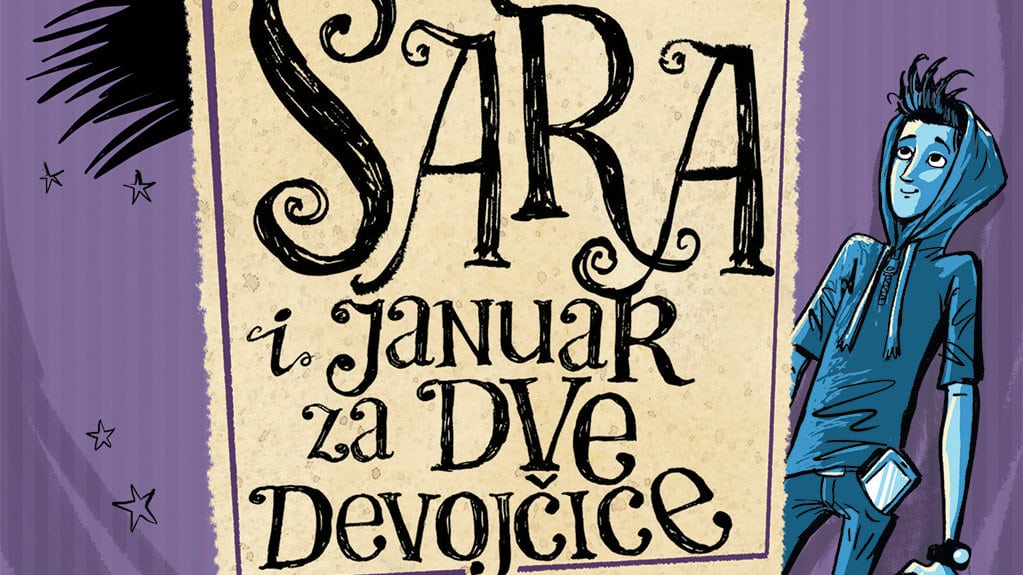 SARA
i januar
za DVe
Devojčice